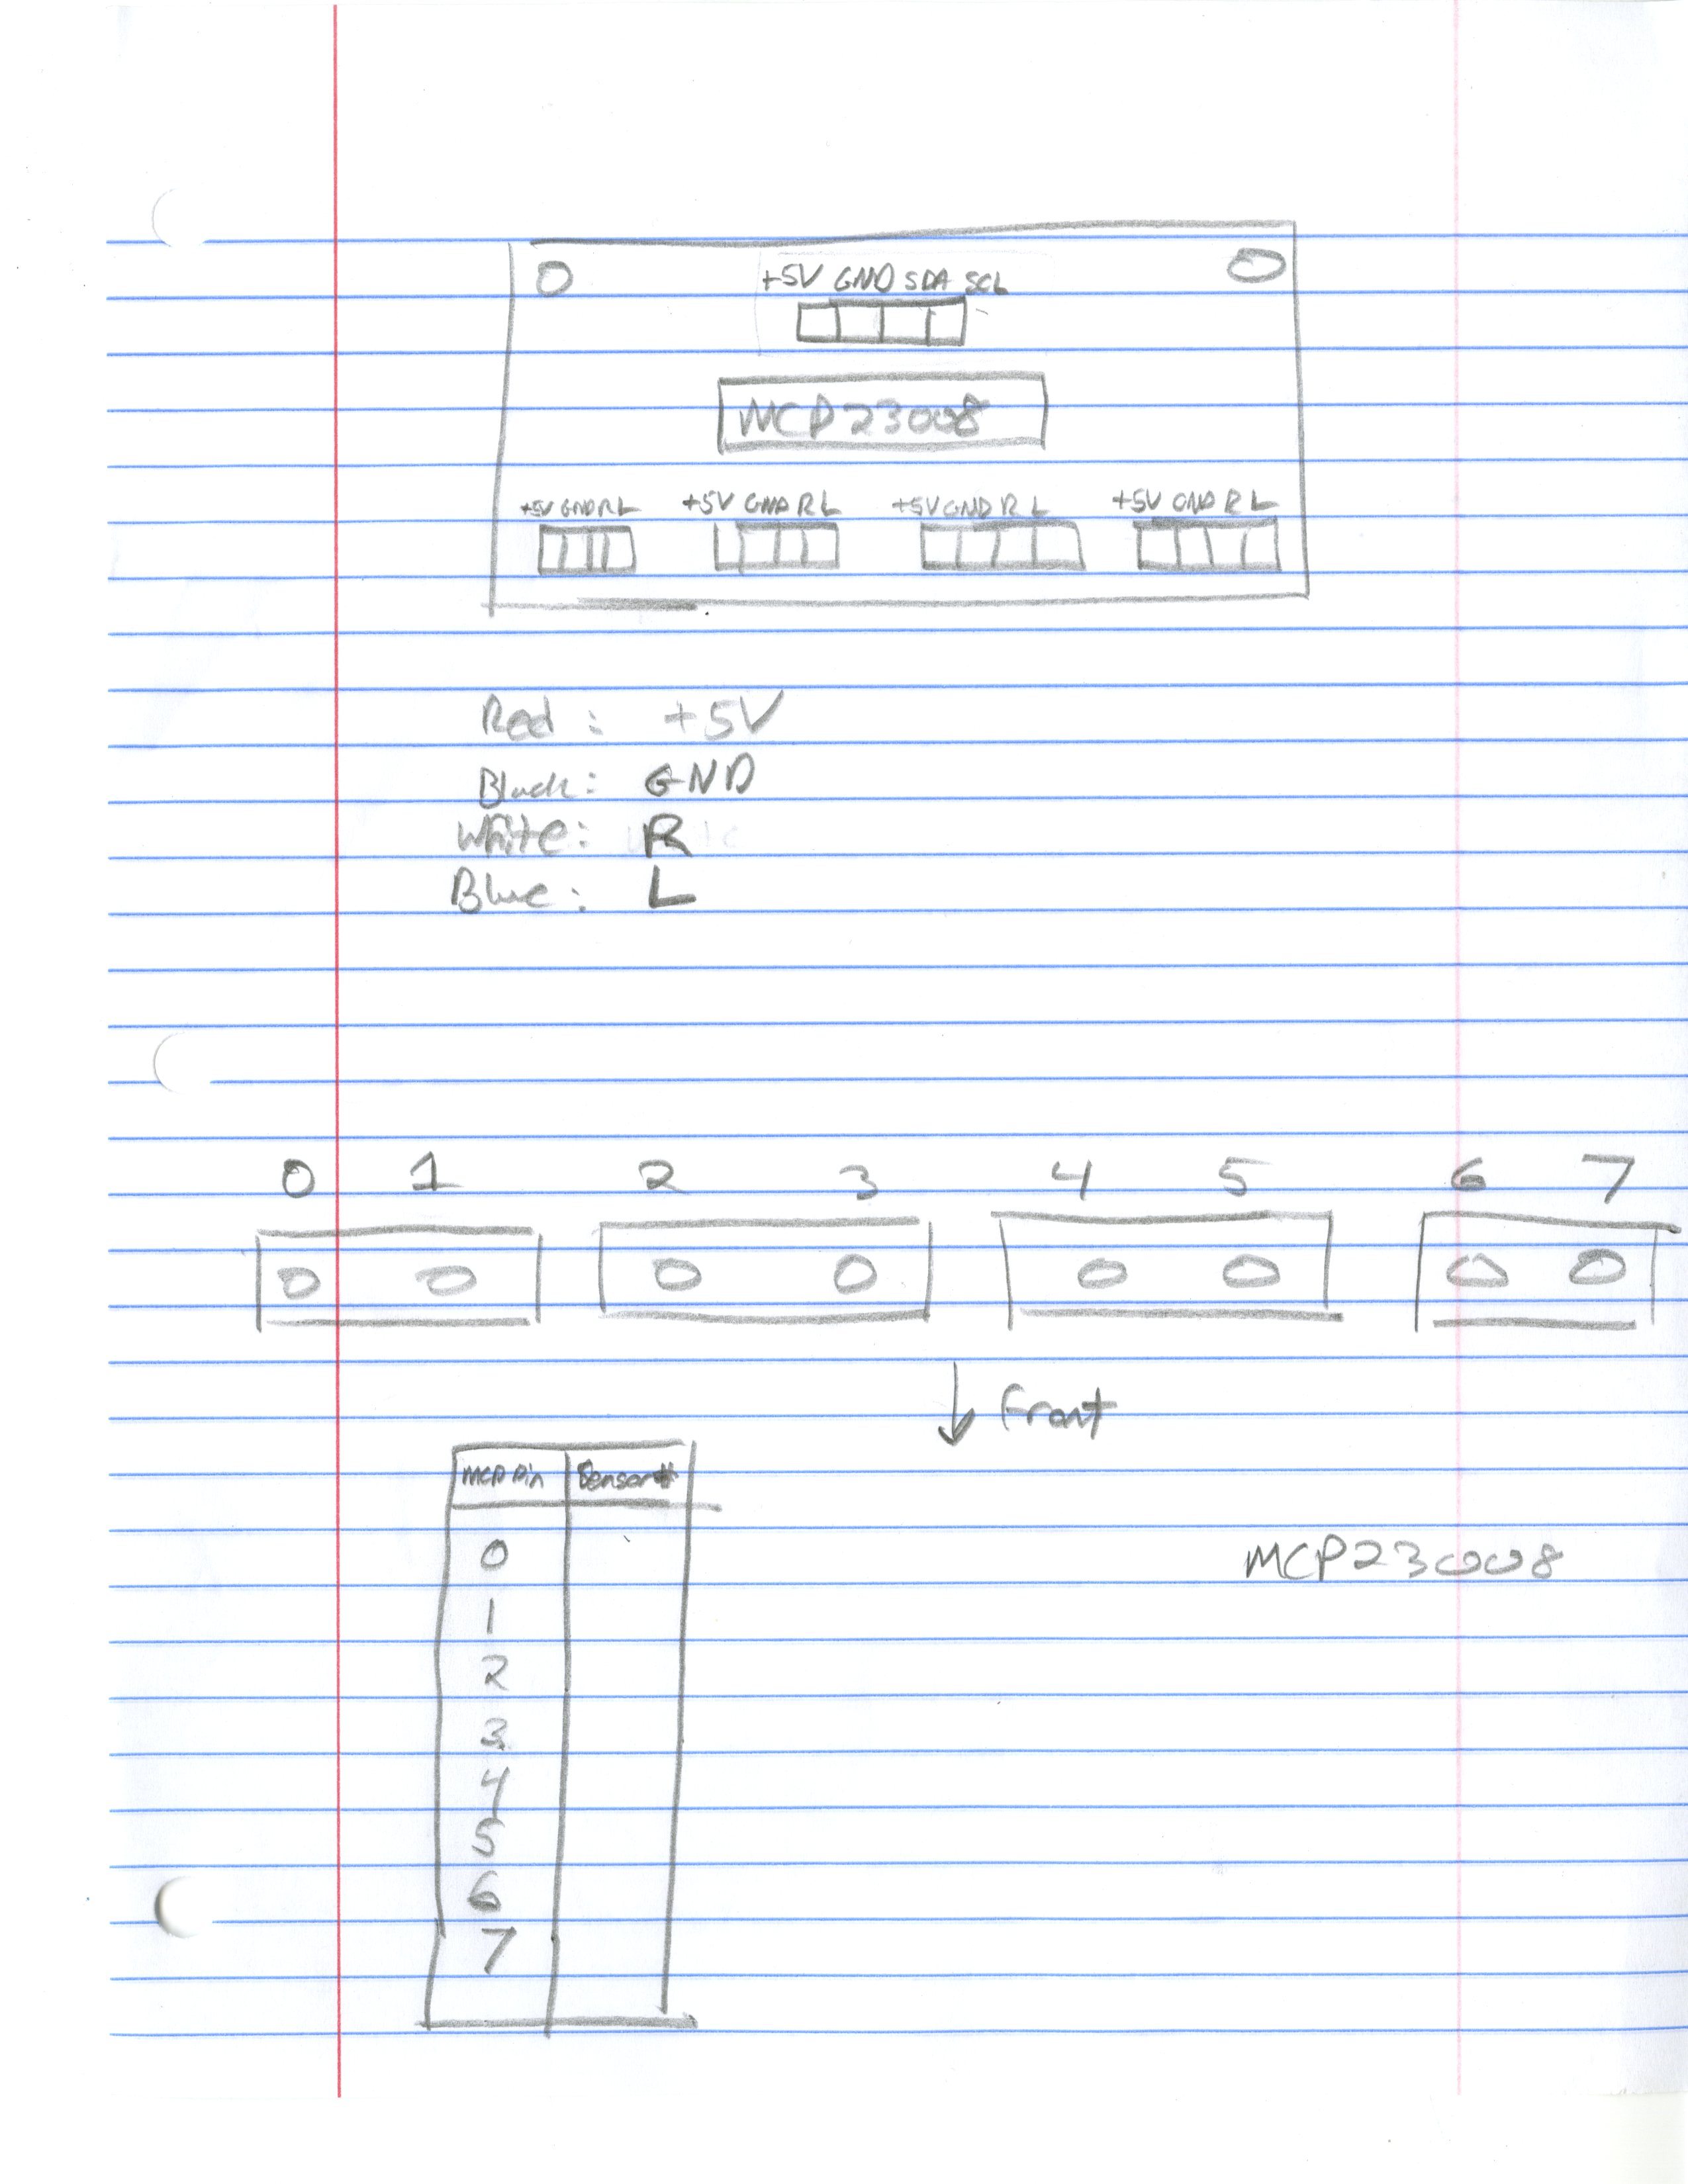 +5V GND SDA SCL
MCP23008
+5V GND R L +5V GND R L +5V GND R L +5V GND R L
Red: +5V
Black: GND
White: R
Blue: L
0 1 2 3 4 5 6 7
Front
MCP Pin Sensor#
0
MCP23008
1
2
3
4
5
6
7